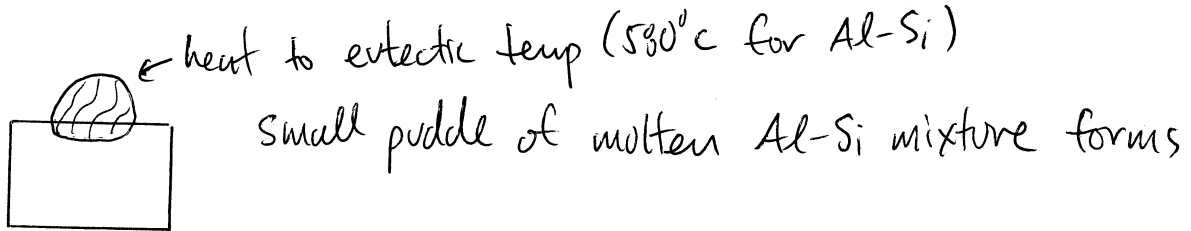 heat to eutectic temp (580°c for Al-Si)
small puddle of molten Al-Si mixture forms